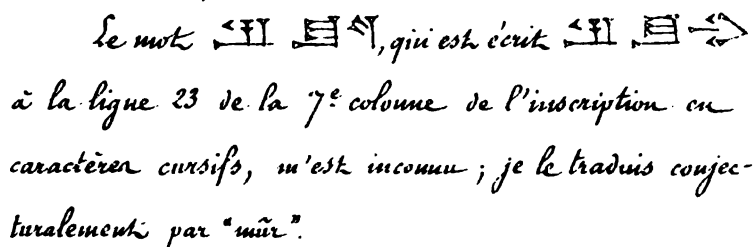 Le mot , qui est écrit
à la ligne 23 de la 7e colonne de l'inscription en
caractères cursifs, m'est inconnu ; je le traduis conjec-
turalement par "mûr".